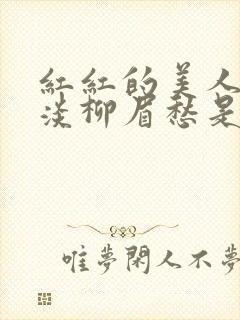 红红的美人
淡柳眉愁是
唯夢閑人不夢